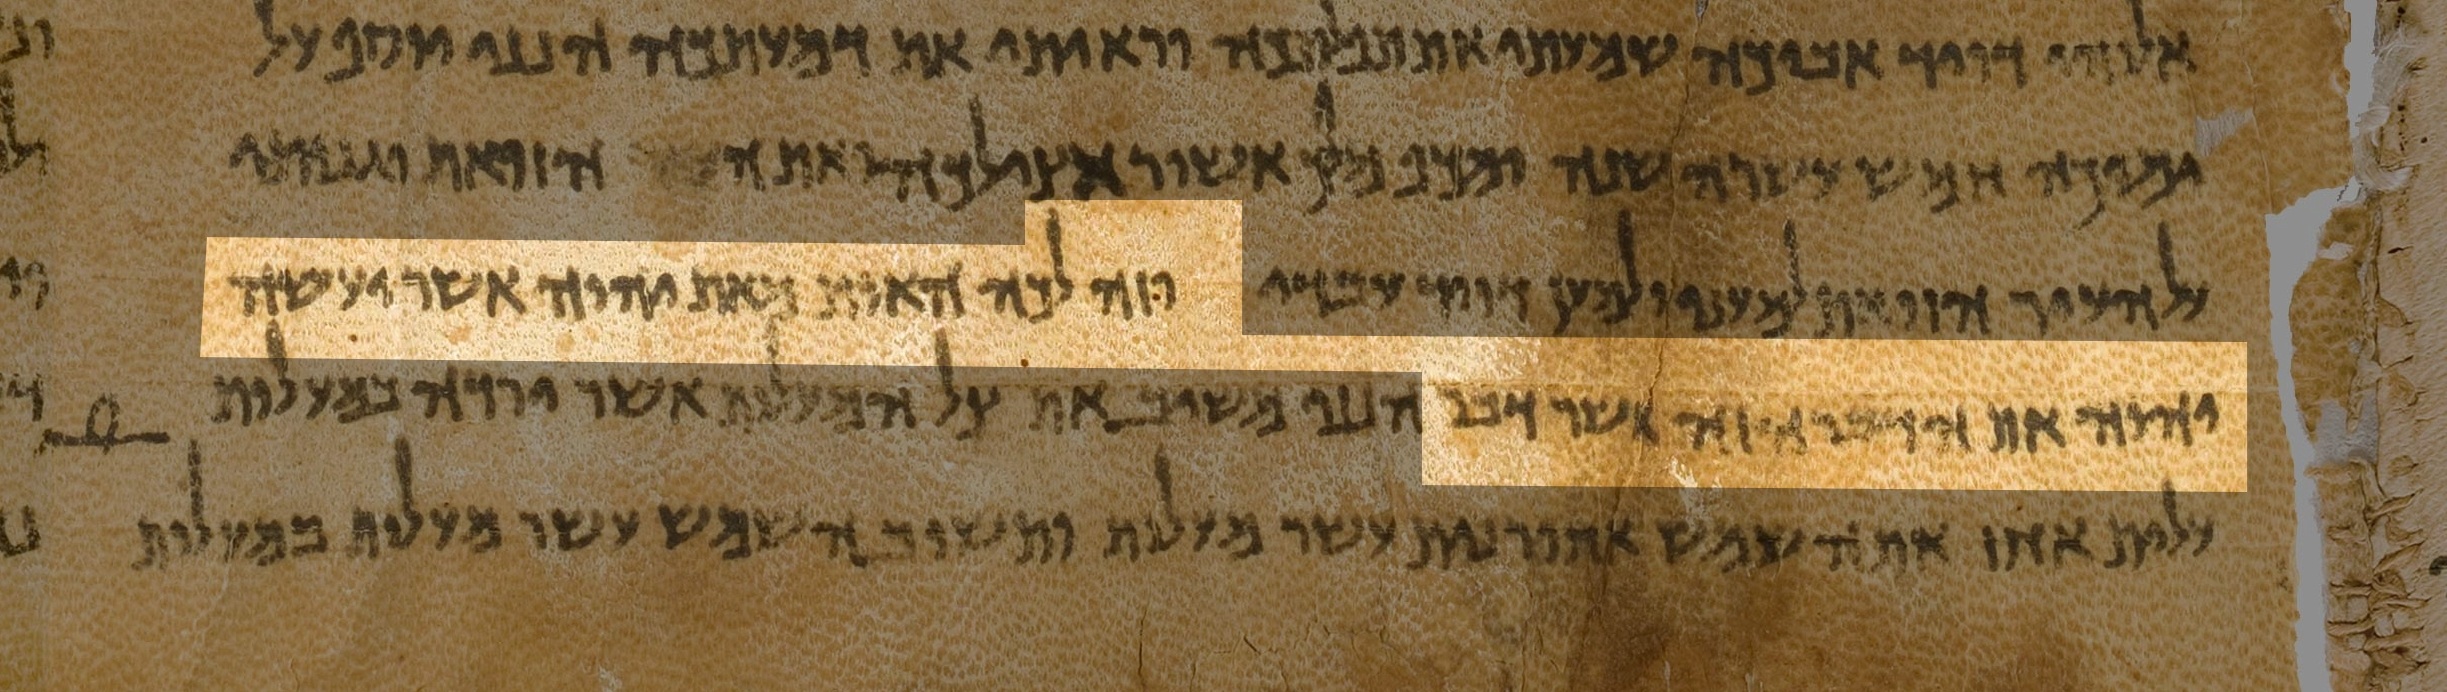 אלוהי דויד אביכה שמעתי את תפלתכה וראיתי את דמעתכה הנני יוסף על
ימיכה חמש עשרה שנה ומכף מלך אשור אצילכה ואת הזואת וגנותי
על העיר הזואת למעני ולמען דויד עבדי וזה לכה האות מאת יהוה אשר יעשה
יהוה את הדבר הזה אשר דבר הנני משיב את צל המעלות אשר ירדה במעלות
עלית אחז את השמש אחורנית עשר מעלות ותשוב השמש עשר מעלות במעלות